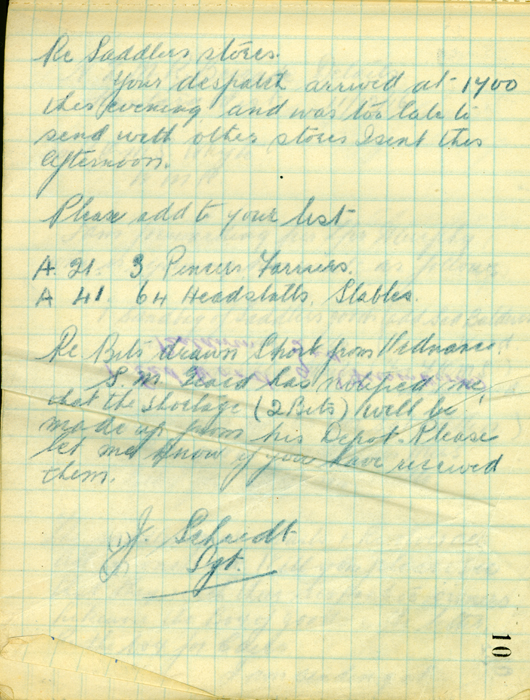 Re Saddlers stores.
Your despatch arrived at 1700
this evening and was too late to
send with other stores I sent this
afternoon.
Please add to your list
A 21. 3 Pincers Farriers.
A 41 64 Headstalls. Stables.
Re Bits drawn Short from Ordnance.
S.M. has notified me
that the shortage (2 Bits) will be
made up from his Depot. Please
let me know if you have received
them.
J. Schmidt
Sgt.
10